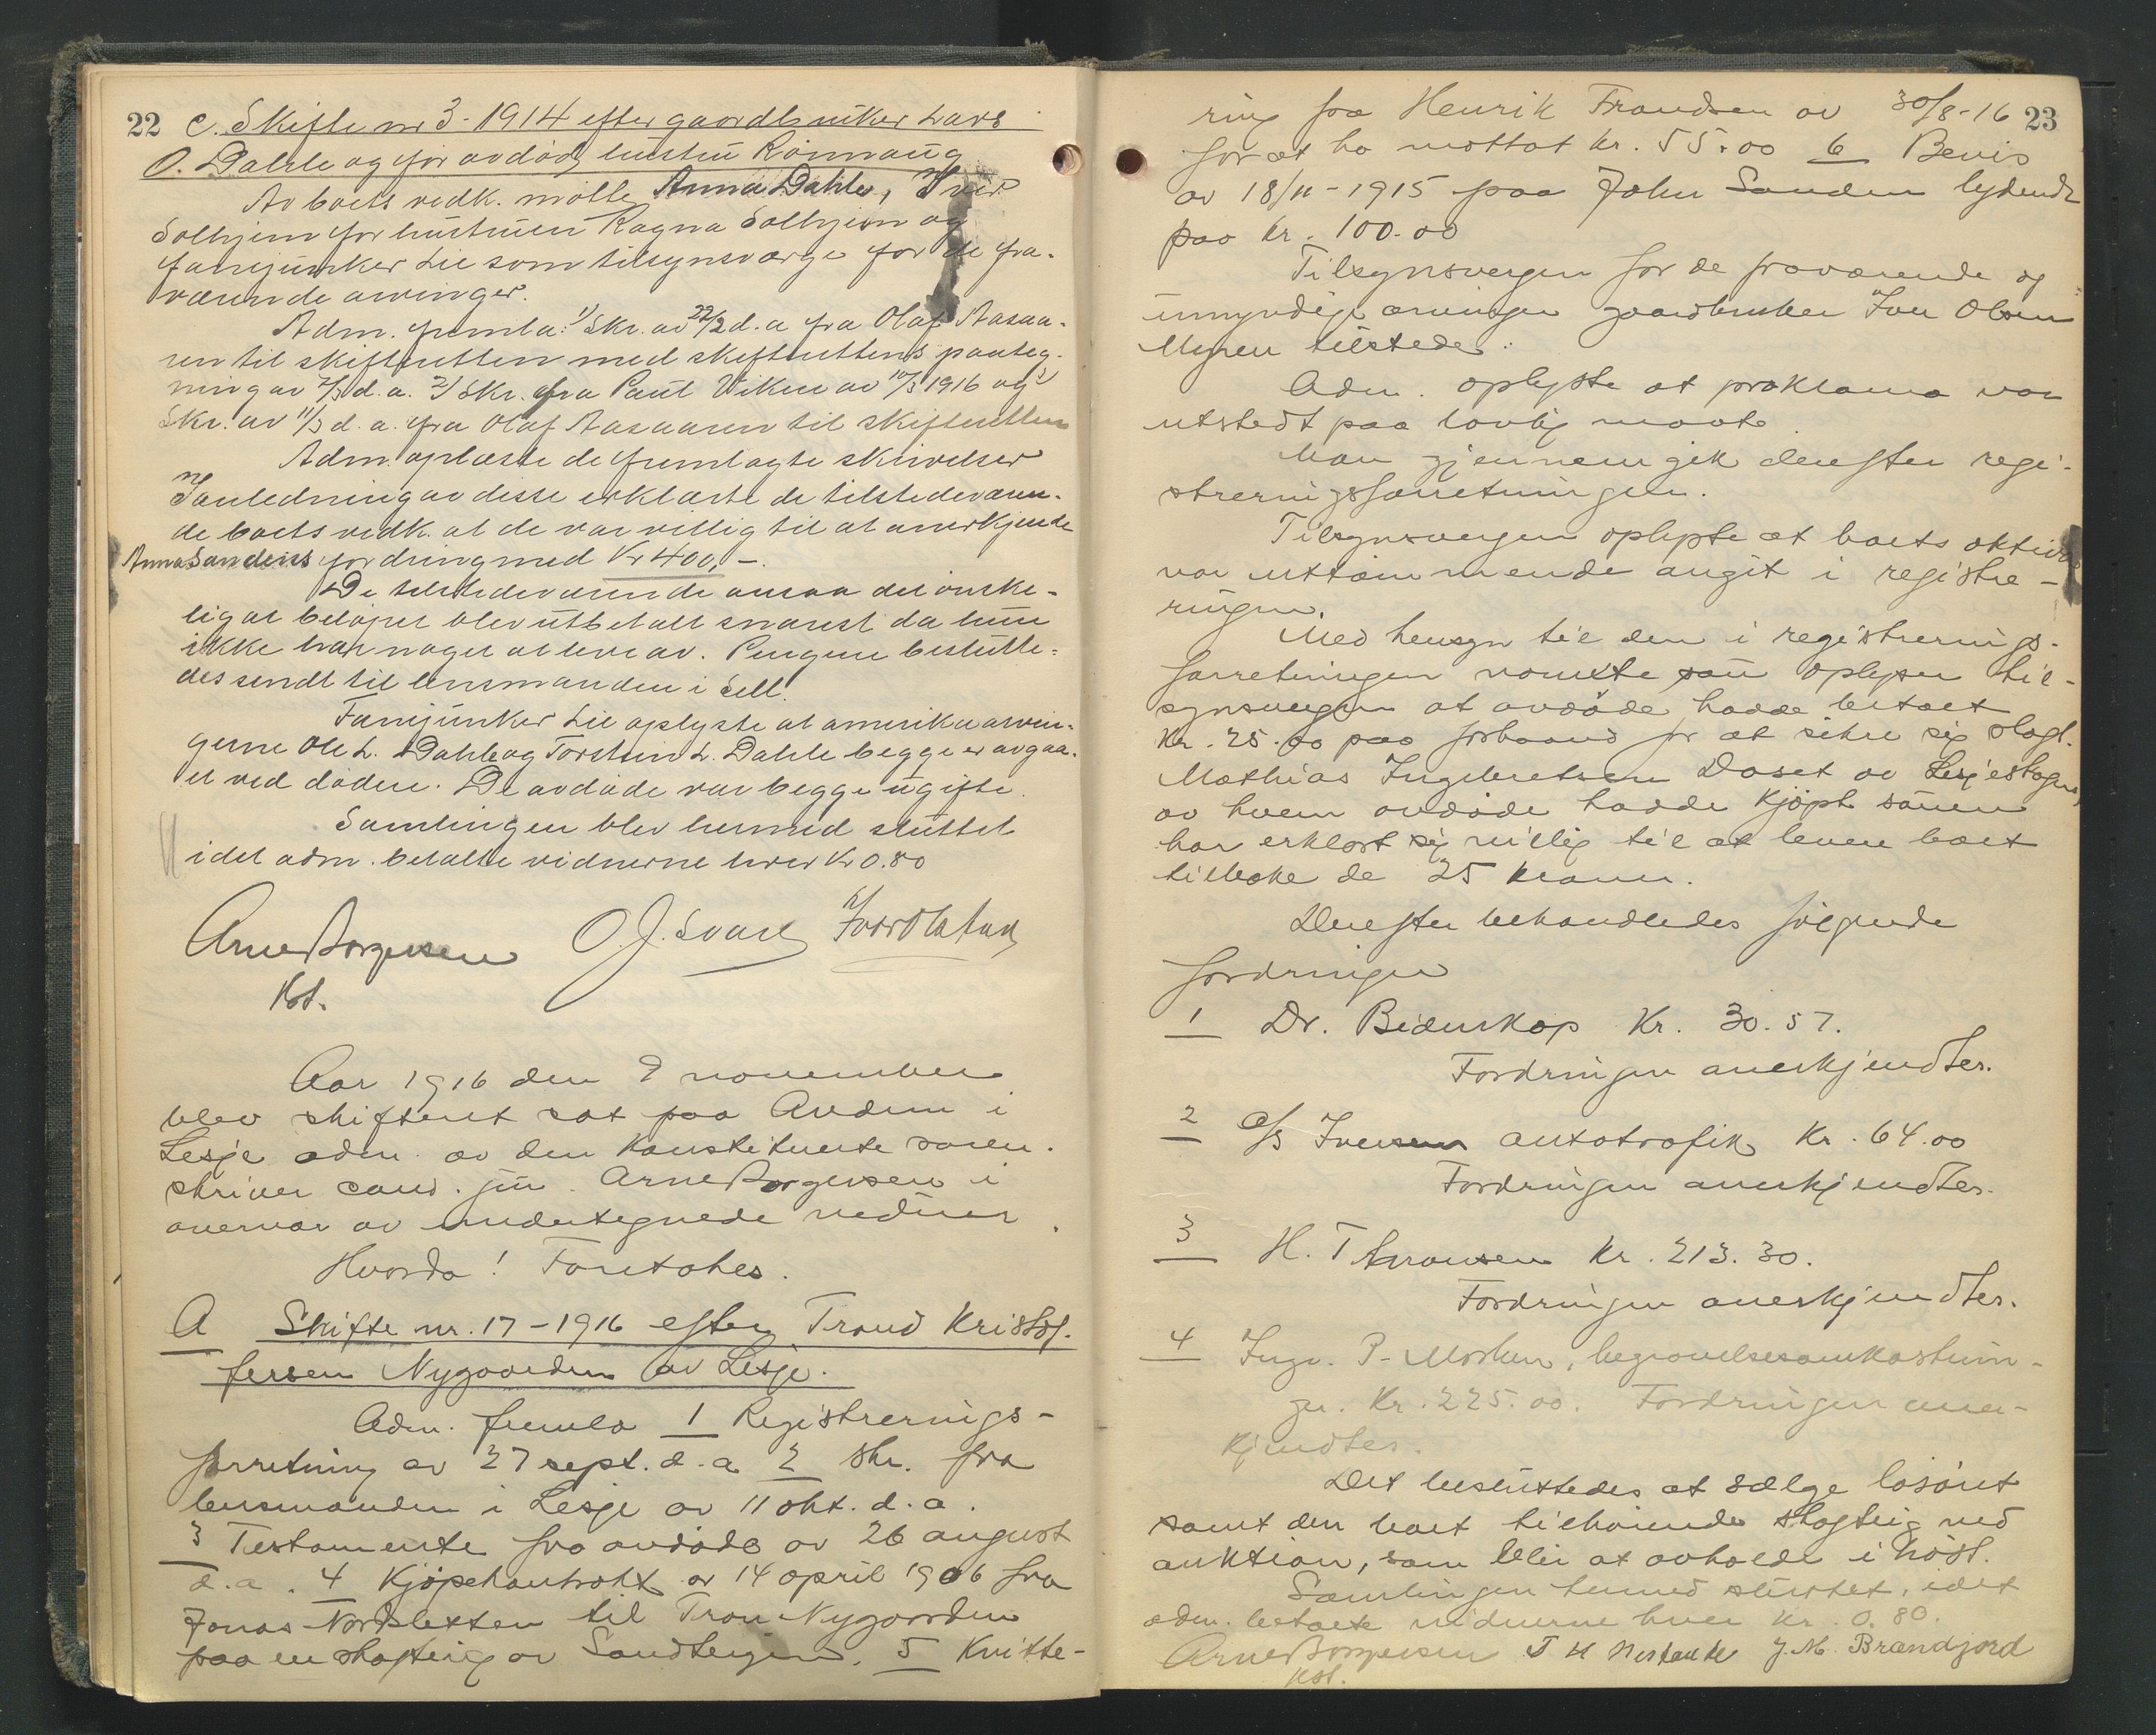 22 C. Skifte nr 3 - 1914 efter gaardbruker Lars
O. Dahle og før avdød hustru Rønnaug
Av boets vedk. møtte Anna Dahle, Iver
Solhjem for hustruen Ragna Solhjem og
fanejunker Lie som tilsynsværge for de fra-
værende arvinger.
Adm. fremla: 1/ Skr. av 22/2 d. a fra Olaf Aasaa-
ren til skifteretten med skifterettens paateg-
ning av 2/3 d. a. 2/ Skr. fra Paul Viken av 10/3 1916 og 3/
Skr. av 11/3 d. a. fra Olaf Aasaaren til skifteretten
Adm. oplæste de fremlagte skrivelser
I anledning av disse erklærte de tilstedeværen-
de boets vedk. at de var villig til at anerkjende
Anna Sandens fordring med Kr 400,-.
De tilstedeværende ansaa det ønske-
lig at beløpet blev utbetalt snarest da hun
ikke har noget at leve av. Pengene beslutte-
des sendt til lensmanden i Sell.
Fanejunker Lie oplyste at amerikaarvin-
gerne Ole L. Dahle og Torstein L. Dahle begge er avgaa-
et ved døden. De avdøde var begge ugifte.
Samlingen blev hermed sluttet
idet adm. betalte vidnerne hver Kr 0.80
Arne Borgersen O. J. Svare
Kst.
Aar 1916 den 9 november
blev skifteret sat paa Avdem i
Lesje adm. av den konstituerte soren-
skriver cand. jur. Arne Borgersen i
overvær av undertegnede vidner.
Hvorda! Foretokes.
A Skifte nr. 17 - 1916 efter Trond Kristof-
fersen Nygaarden av Lesje.
Adm. fremla 1 Registrerings-
forretning av 27 sept. d. a 2 skr. fra
lensmanden i Lesje av 11 okt. d. a.
3 Testamente fra avdøde av 26 august
d. a. 4 Kjøpekontrakt av 14 april 1906 fra
Jonas Nordsletten til Tron Nygaarden
paa en skogteig av Sandteigen. 5 Kvitte-
23
ring fra Henrik Frandsen av 30/8-16
for at ha mottat kr. 55.00 6 Bevis
av 18/11-1915 paa John Sanden lydende
paa kr. 100.00
Tilsynsvergen for de fraværende og
umyndige arvinger gaardbruker Iver Olsen
Myren tilstede.
Adm. oplyste at proklama var
utstedt paa lovlig maate.
Man gjennemgik derefter regi-
streringsforretningen.
Tilsynsvergen oplyste at boets aktiva
var uttømmende angit i registre-
ringen.
Med hensyn til den i registrerings-
forretningen nævnte sau oplyser til-
synsvergen at avdøde hadde betalt
kr. 25.00 paa forhaand for at sikre sig slagt.
Mathias Ingebretsen Doset av Lesjeskogen,
av hvem avdøde hadde kjøpt sauen
har erklært sig villig til at levere boet
tilbake de 25 kroner.
Derefter behandledes følgende
fordringer
1 Dr. Bidenkap Kr. 30.57.
Fordringen anerkjendtes.
2 A/S Iversen autotrafik Kr. 64.00
Fordringen anerkjendtes.
3 H. T Kr. 213.30.
Fordringen anerkjendtes.
4 Ingv. P. Morken, begravelsesomkostnin-
ger. Kr. 225.00. Fordringen aner-
kjendtes.
Det besluttedes at sælge løsøret
samt den boet tilhørende skogteig ved
auktion, som blir at avholde i høst.
Samlingen hermed sluttet, idet
adm. betalte vidnerne hver kr. 0.80.
Arne Borgersen T H J. M. Brandjord
Kst.